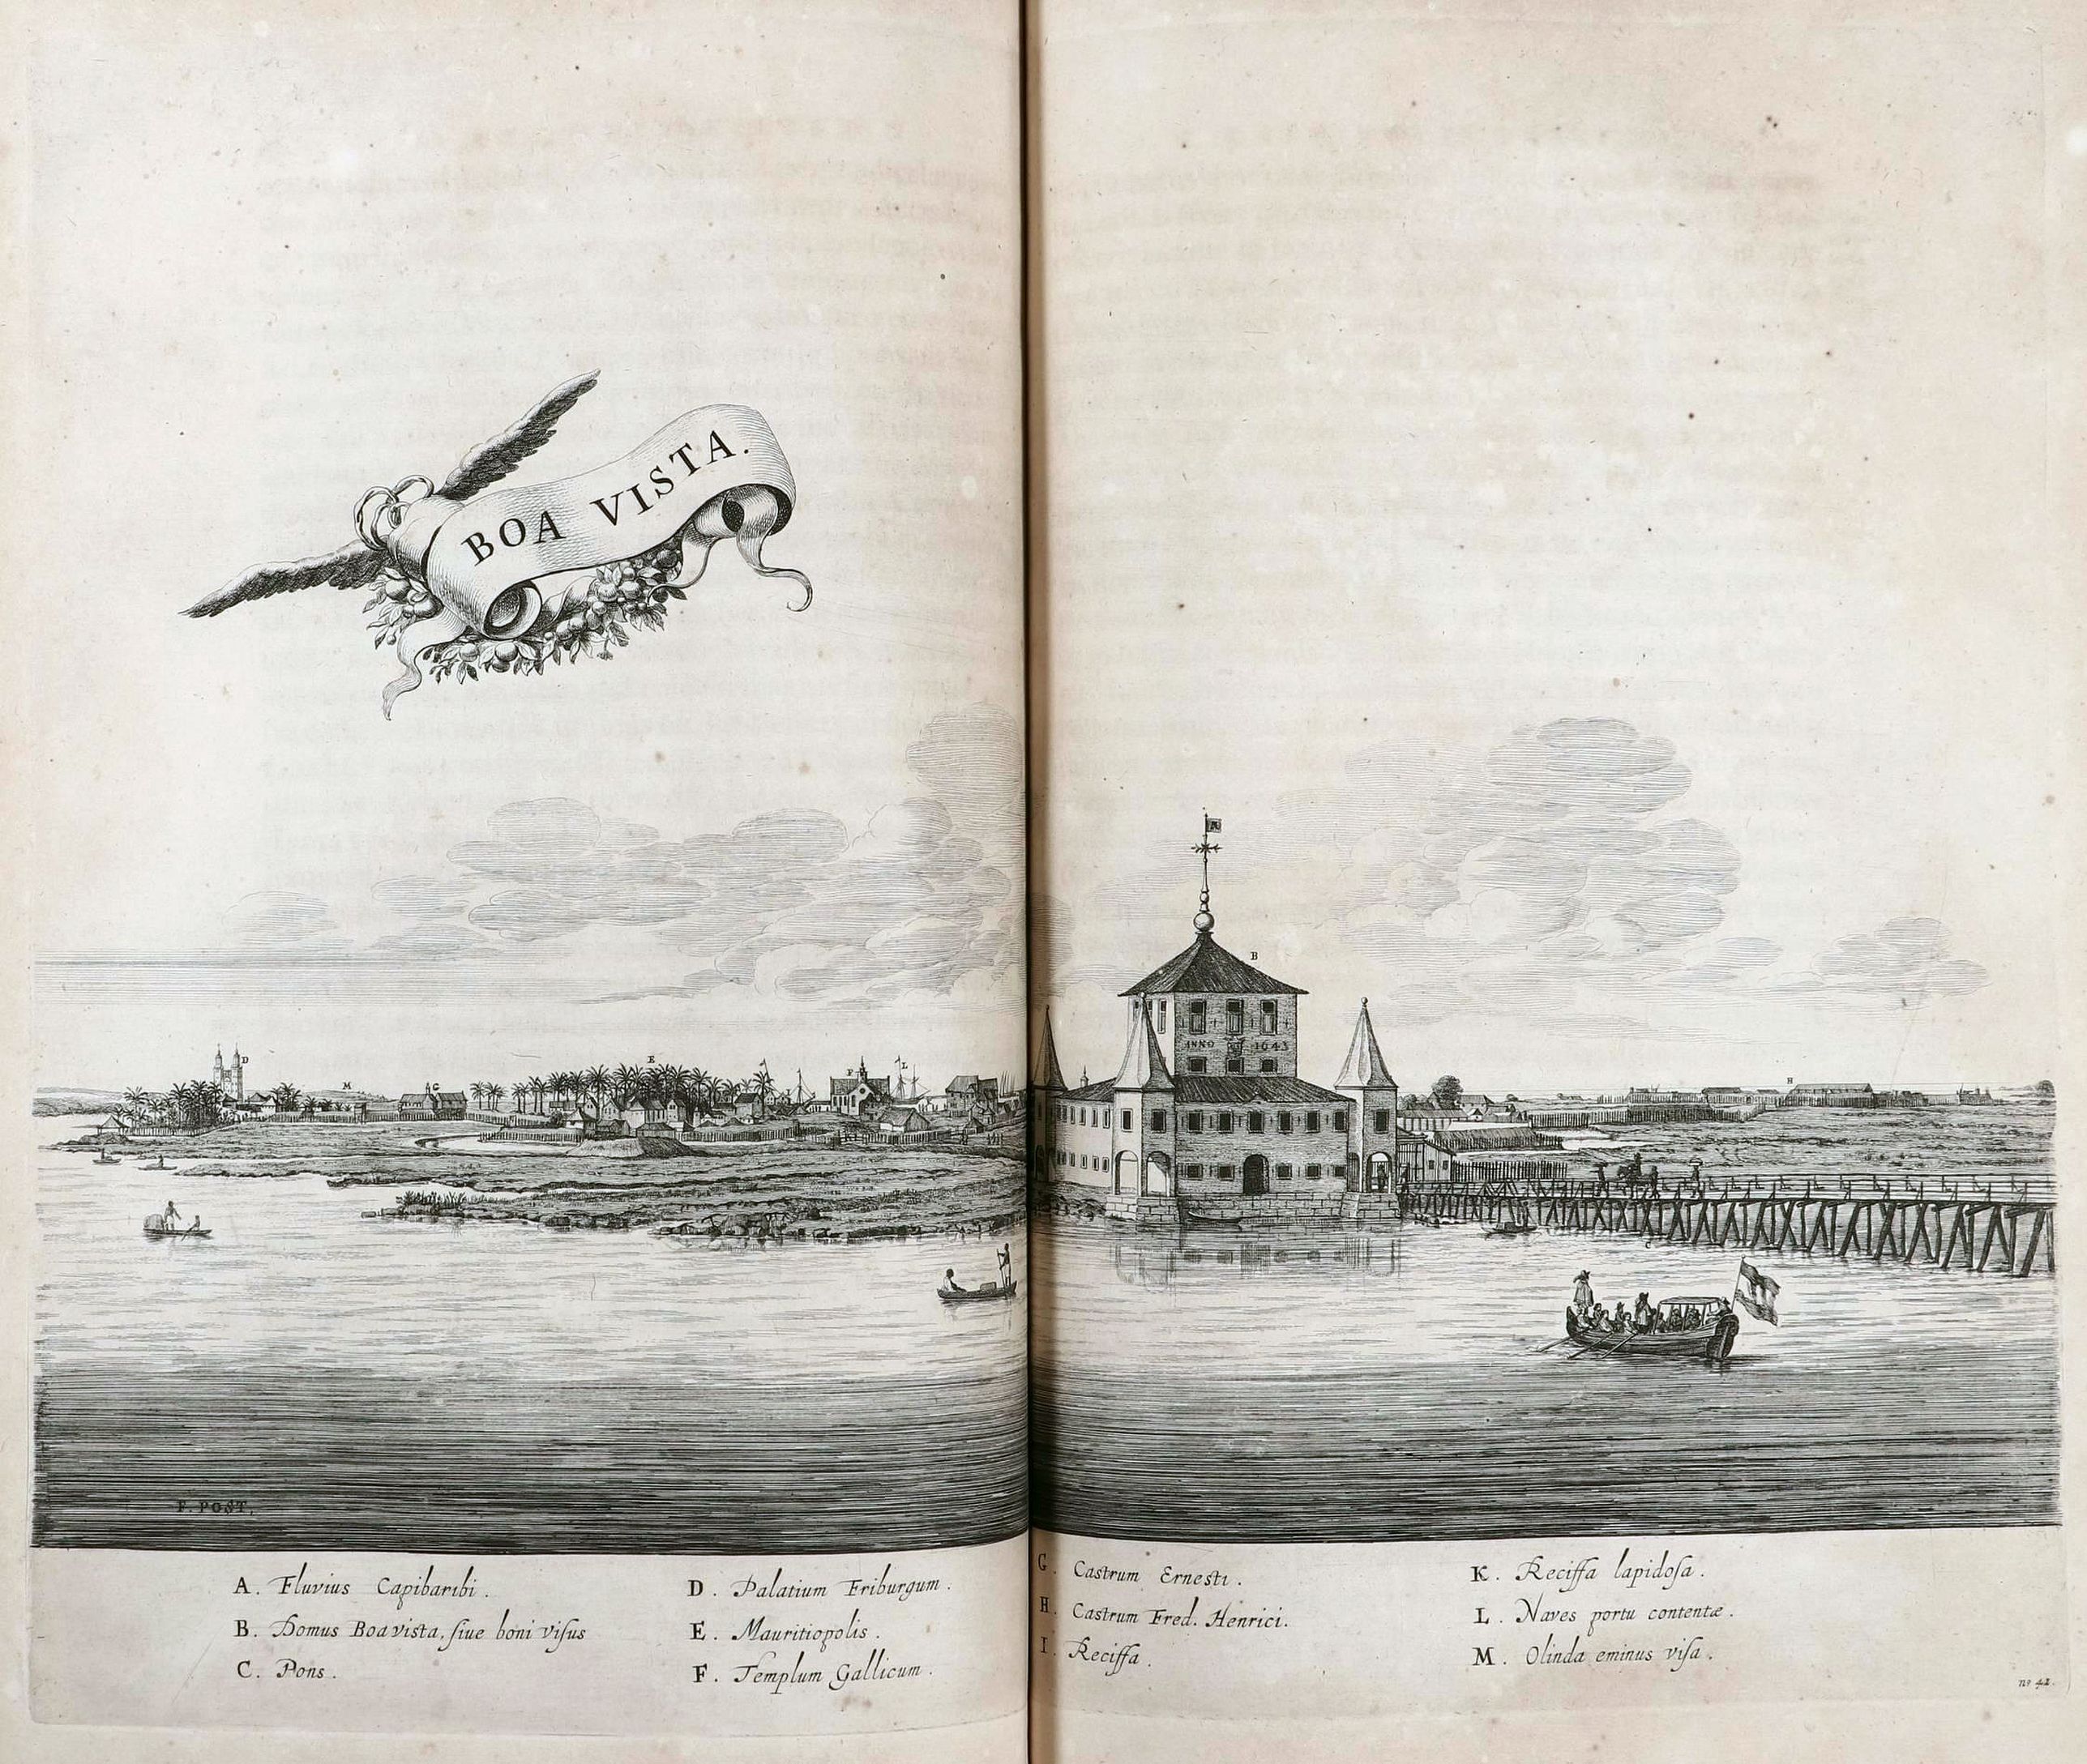 BOA VISTA.
B
D
E
M
G
F
L
H
ANNO 1643
C
F. POST,
A. Fluvius Capibaribi.
B. Domus Boa vista, ſiue boni viſus
C. Pons.
D. Palatium Friburgum.
E. Mauritiopolis.
F. Templum Gallicum.
G. Castrum Ernesti.
H. Castrum Fred. Henrici.
I. Reciffa.
K. Reciffa lapidoſa.
L. Naves portu contentæ.
M. Olinda eminus viſa.
nº 41.